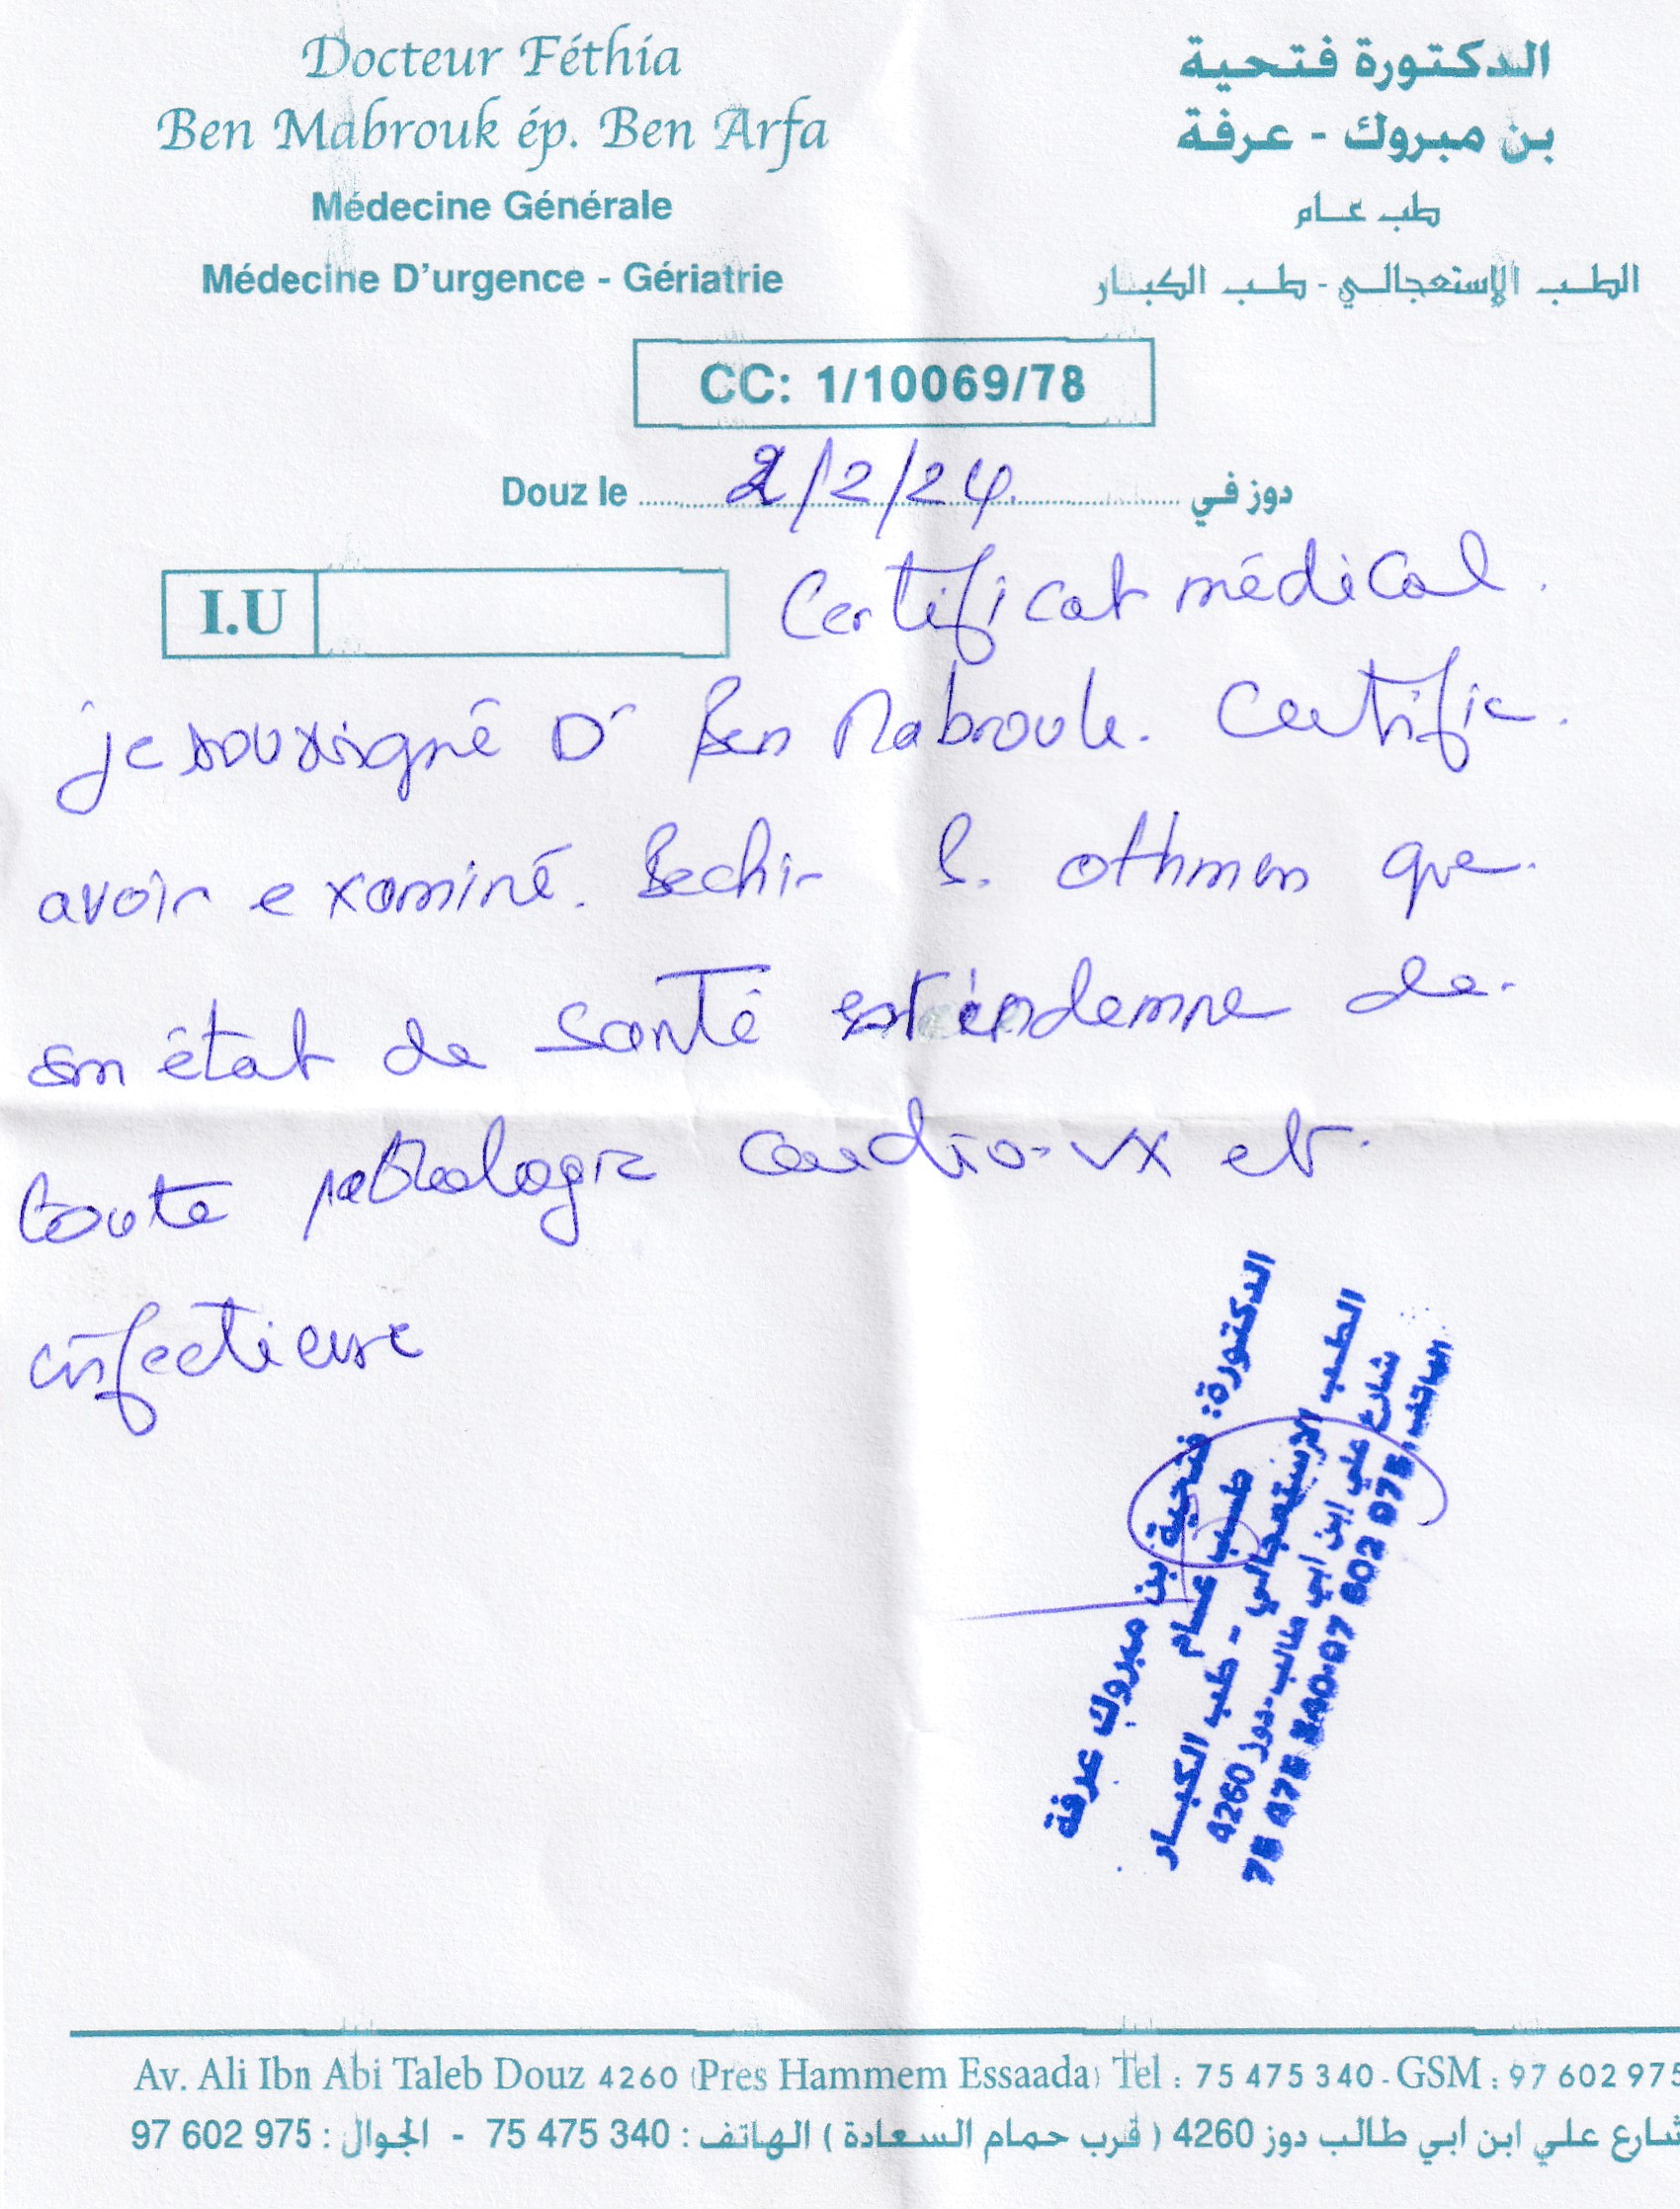 Docteur Féthia
Ben Mabrouk ép. Ben Arfa
Médecine Générale
Médecine D'urgence - Gériatrie
الدكتورة فتحية
بن مبروك - عرفة
طب عام
الطب الإستعجالي - طب الكبار
CC: 1/10069/78
Douz le 2/2/24 دوز في
I.U
Certificat médical.
je soussigné Dr Ben Mabrouk. Certifie.
avoir examiné. Bechir B. othmen que.
son état de santé est indemne de.
toute pathologie cardio-vx et.
infectieuse
الدكتورة: فتحية بن مبروك عرفة
طب عام
الطب الإستعجالي - طب الكبار
شارع علي ابن ابي طالب - دوز 4260
الهاتف:
Av. Ali Ibn Abi Taleb Douz 4260 (Pres Hammem Essaada) Tel : 75 475 340 - GSM : 97 602 975
شارع علي ابن ابي طالب دوز 4260 ( قرب حمام السعادة ) الهاتف : 340 475 75 - الجوال : 975 602 97